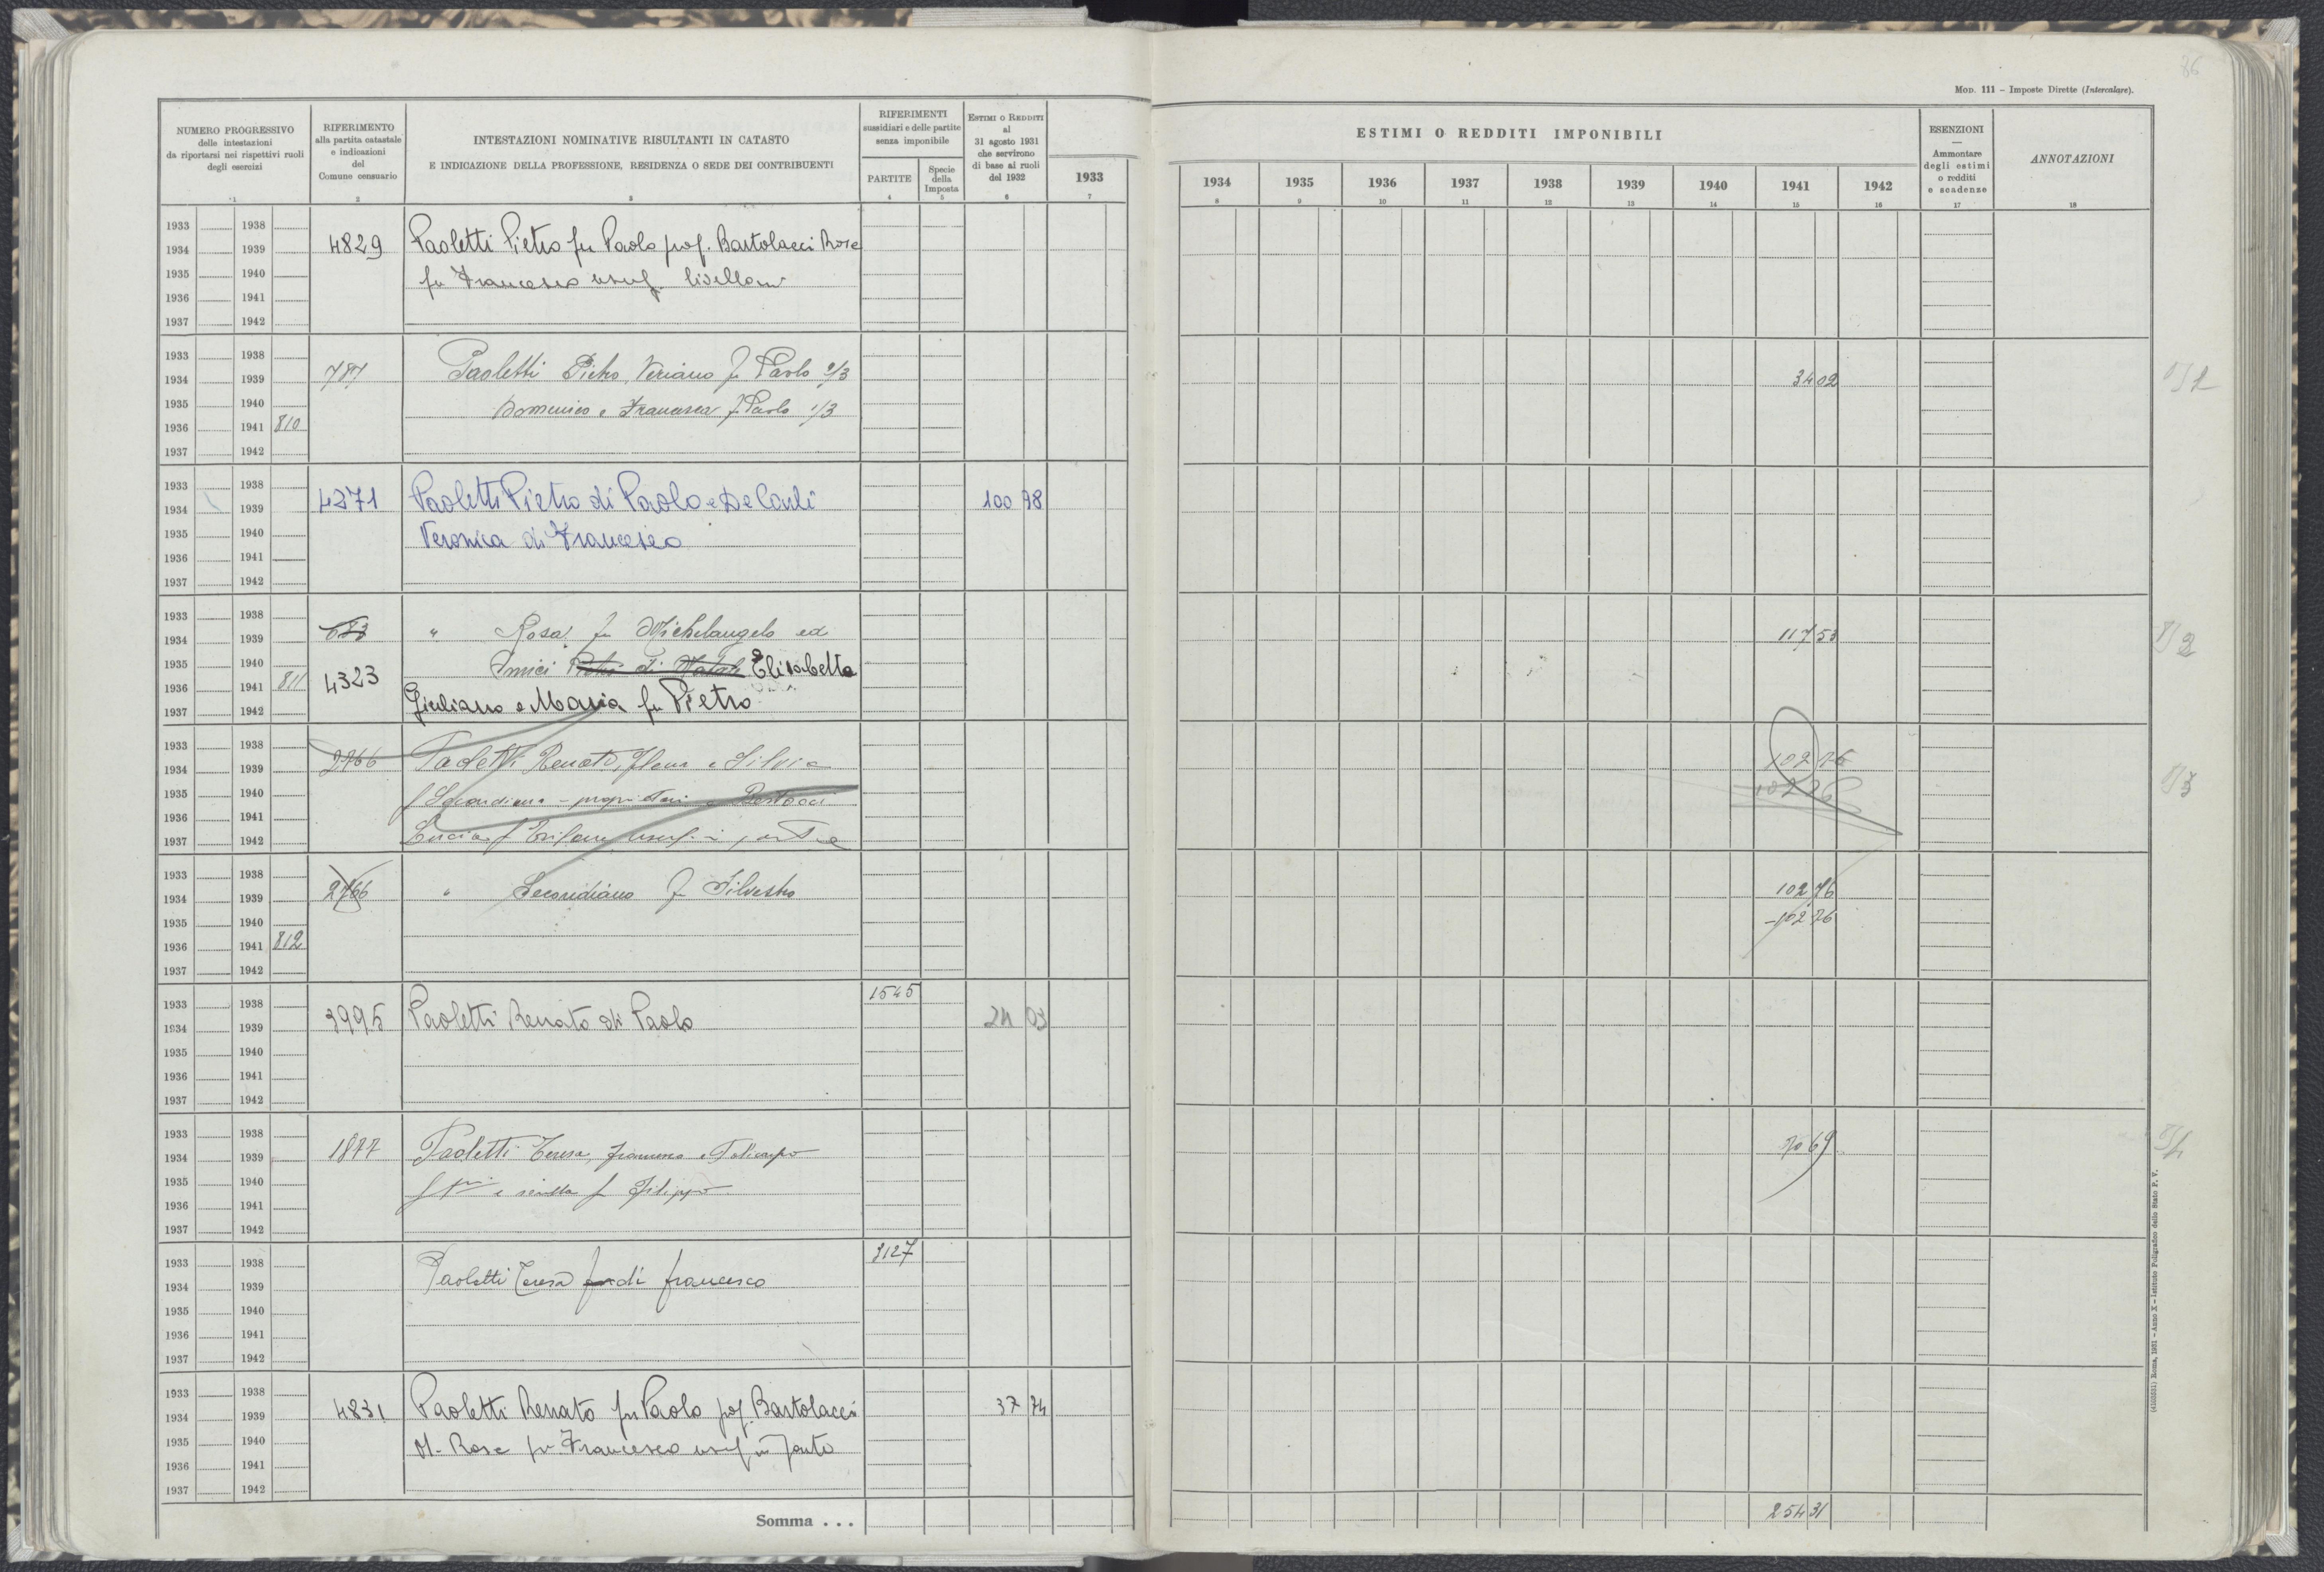 86
MOD. 111 – Imposte Dirette (Intercalare).
NUMERO PROGRESSIVO
delle intestazioni
da riportarsi nei rispettivi ruoli
degli esercizi
1
RIFERIMENTO
alla partita catastale
e indicazioni
del
Comune censuario
2
INTESTAZIONI NOMINATIVE RISULTANTI IN CATASTO
E INDICAZIONE DELLA PROFESSIONE, RESIDENZA O SEDE DEI CONTRIBUENTI
3
RIFERIMENTI
sussidiari e delle partite
senza imponibile
PARTITE
4
Specie
della
Imposta
5
ESTIMI O REDDITI
al
31 agosto 1931
che servirono
di base ai ruoli
del 1932
6
1933
7
ESTIMI O REDDITI IMPONIBILI
1934 1935 1936 1937 1938 1939 1940 1941 1942
8 9 10 11 12 13 14 15 16
ESENZIONI
—
Ammontare
degli estimi
o redditi
e scadenze
17
ANNOTAZIONI
18
1933 1938
1934 1939 4829 Paoletti Pietro fu Paolo prof. Bartolacci Rosa
1935 1940 fu Francesco usuf.
1936 1941
1937 1942
1933 1938
1934 1939 787 Paoletti Pietro, Veriano f. Paolo 2/3 3402
1935 1940 Domenico e Francesca f. Paolo 1/3
1936 1941 810
1937 1942
1933 1938
1934 1939 4371 Paoletti Pietro di Paolo e De Carli 100 78
1935 1940 Veronica di Francesco
1936 1941
1937 1942
1933 1938
1934 1939 683 " Rosa fu Michelangelo ed 117 53
1935 1940 Amici Elisabetta
1936 1941 811 4323
1937 1942 Giuliano e Maria fu Pietro
1933 1938
1934 1939 2766 Paoletti Renato, e Silvia 102 76
1935 1940 f Secondiano - proprietari e
1936 1941
1937 1942 Lucia f
1933 1938
1934 1939 2766 " Secondiano f. Silvestro 102 76
1935 1940 -102 76
1936 1941 812
1937 1942
1933 1938 1545
1934 1939 3995 Paoletti Renato di Paolo 24 03
1935 1940
1936 1941
1937 1942
1933 1938
1934 1939 1877 Paoletti Teresa, Francesco e Policarpo 70 69
1935 1940 f Filippo
1936 1941
1937 1942
1933 1938 3127
1934 1939 Paoletti Teresa fu di francesco
1935 1940
1936 1941
1937 1942
1933 1938
1934 1939 4831 Paoletti Renato fu Paolo prof. Bartolacci 37 74
1935 1940 M. Rosa fu Francesco usuf in parte
1936 1941
1937 1942
Somma . . . 254 31
(4103531) Roma, 1931 - Anno X - Istituto Poligrafico dello Stato P. V.